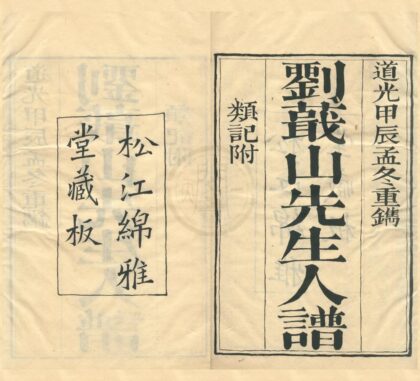 道光甲辰孟冬重鐫
劉蕺山先生人譜
類記附
松江綿雅
堂藏板